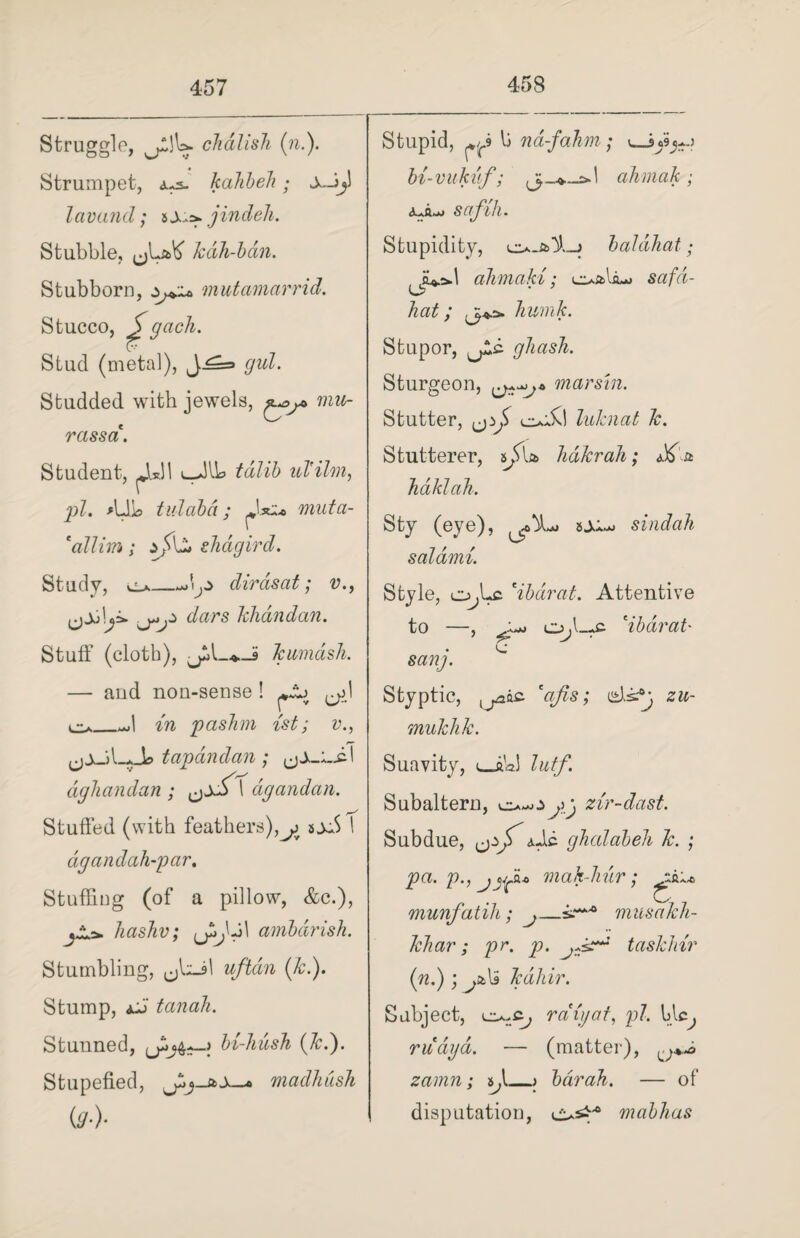 457
458
Struggle, چالش chálish (n.).
Strumpet, قحبه kahbeh ; لوند
lavand ; جنده jindeh.
Stubble, کاهبان káh-bán.
Stubborn, متمرد mutamarrid.
Stucco, گچ gach.
Stud (metal), گل gul.
Studded with jewels, مرصع mu-
rassa'.
Student, طالب العلم tálib ul'ilm,
pl. طلباء tulabá ; متعلم muta-
'allim ; شاگرد shágird.
Study, دراست dirásat ; v.,
درس خواندن dars khándan.
Stuff (cloth), قماش kumásh.
— and non-sense ! این پشم
است ín pashm ist ; v.,
طپاندن tapándan ; آغندن
ághandan ; آگندن ágandan.
Stuffed (with feathers), آگنده پر
ágandah-par.
Stuffing (of a pillow, &c.),
حشو hashv ; انبارش ambárish.
Stumbling, افتان uftán (k.).
Stump, تنه tanah.
Stunned, بیهوش bí-húsh (k.).
Stupefied, مدهوش madhúsh
(g.).
Stupid, نا فهم ná-fahm ; بیوقوف
bí-vukúf ; احمق ahmak ;
سفیه safíh.
Stupidity, بلاهت baláhat ;
احمقی ahmakí ; سفاهت safá-
hat ; حمق humk.
Stupor, غش ghash.
Sturgeon, مرسین marsín.
Stutter, لکنت کردن luknat k.
Stutterer, هاکره hákrah ; هاکله
háklah.
Sty (eye), سنده سلامی sindah
salámí.
Style, عبارت 'ibárat. Attentive
to —, عبارت سنج 'ibárat-
sanj.
Styptic, عفص 'afis ; زمخک zu-
mukhk.
Suavity, لطف lutf.
Subaltern, زیردست zír-dast.
Subdue, غلبه کردن ghalabeh k. ;
pa. p., مقهور mak-húr ; منفتح
munfatih ; مسخر musakh-
khar ; pr. p. تسخیر taskhír
(n.) ; قاهر káhir.
Subject, رعیت ra'iyat, pl. رعایا
ru'áyá. — (matter), ضمن
zamn ; باره bárah. — of
disputation, مبحث mabhas